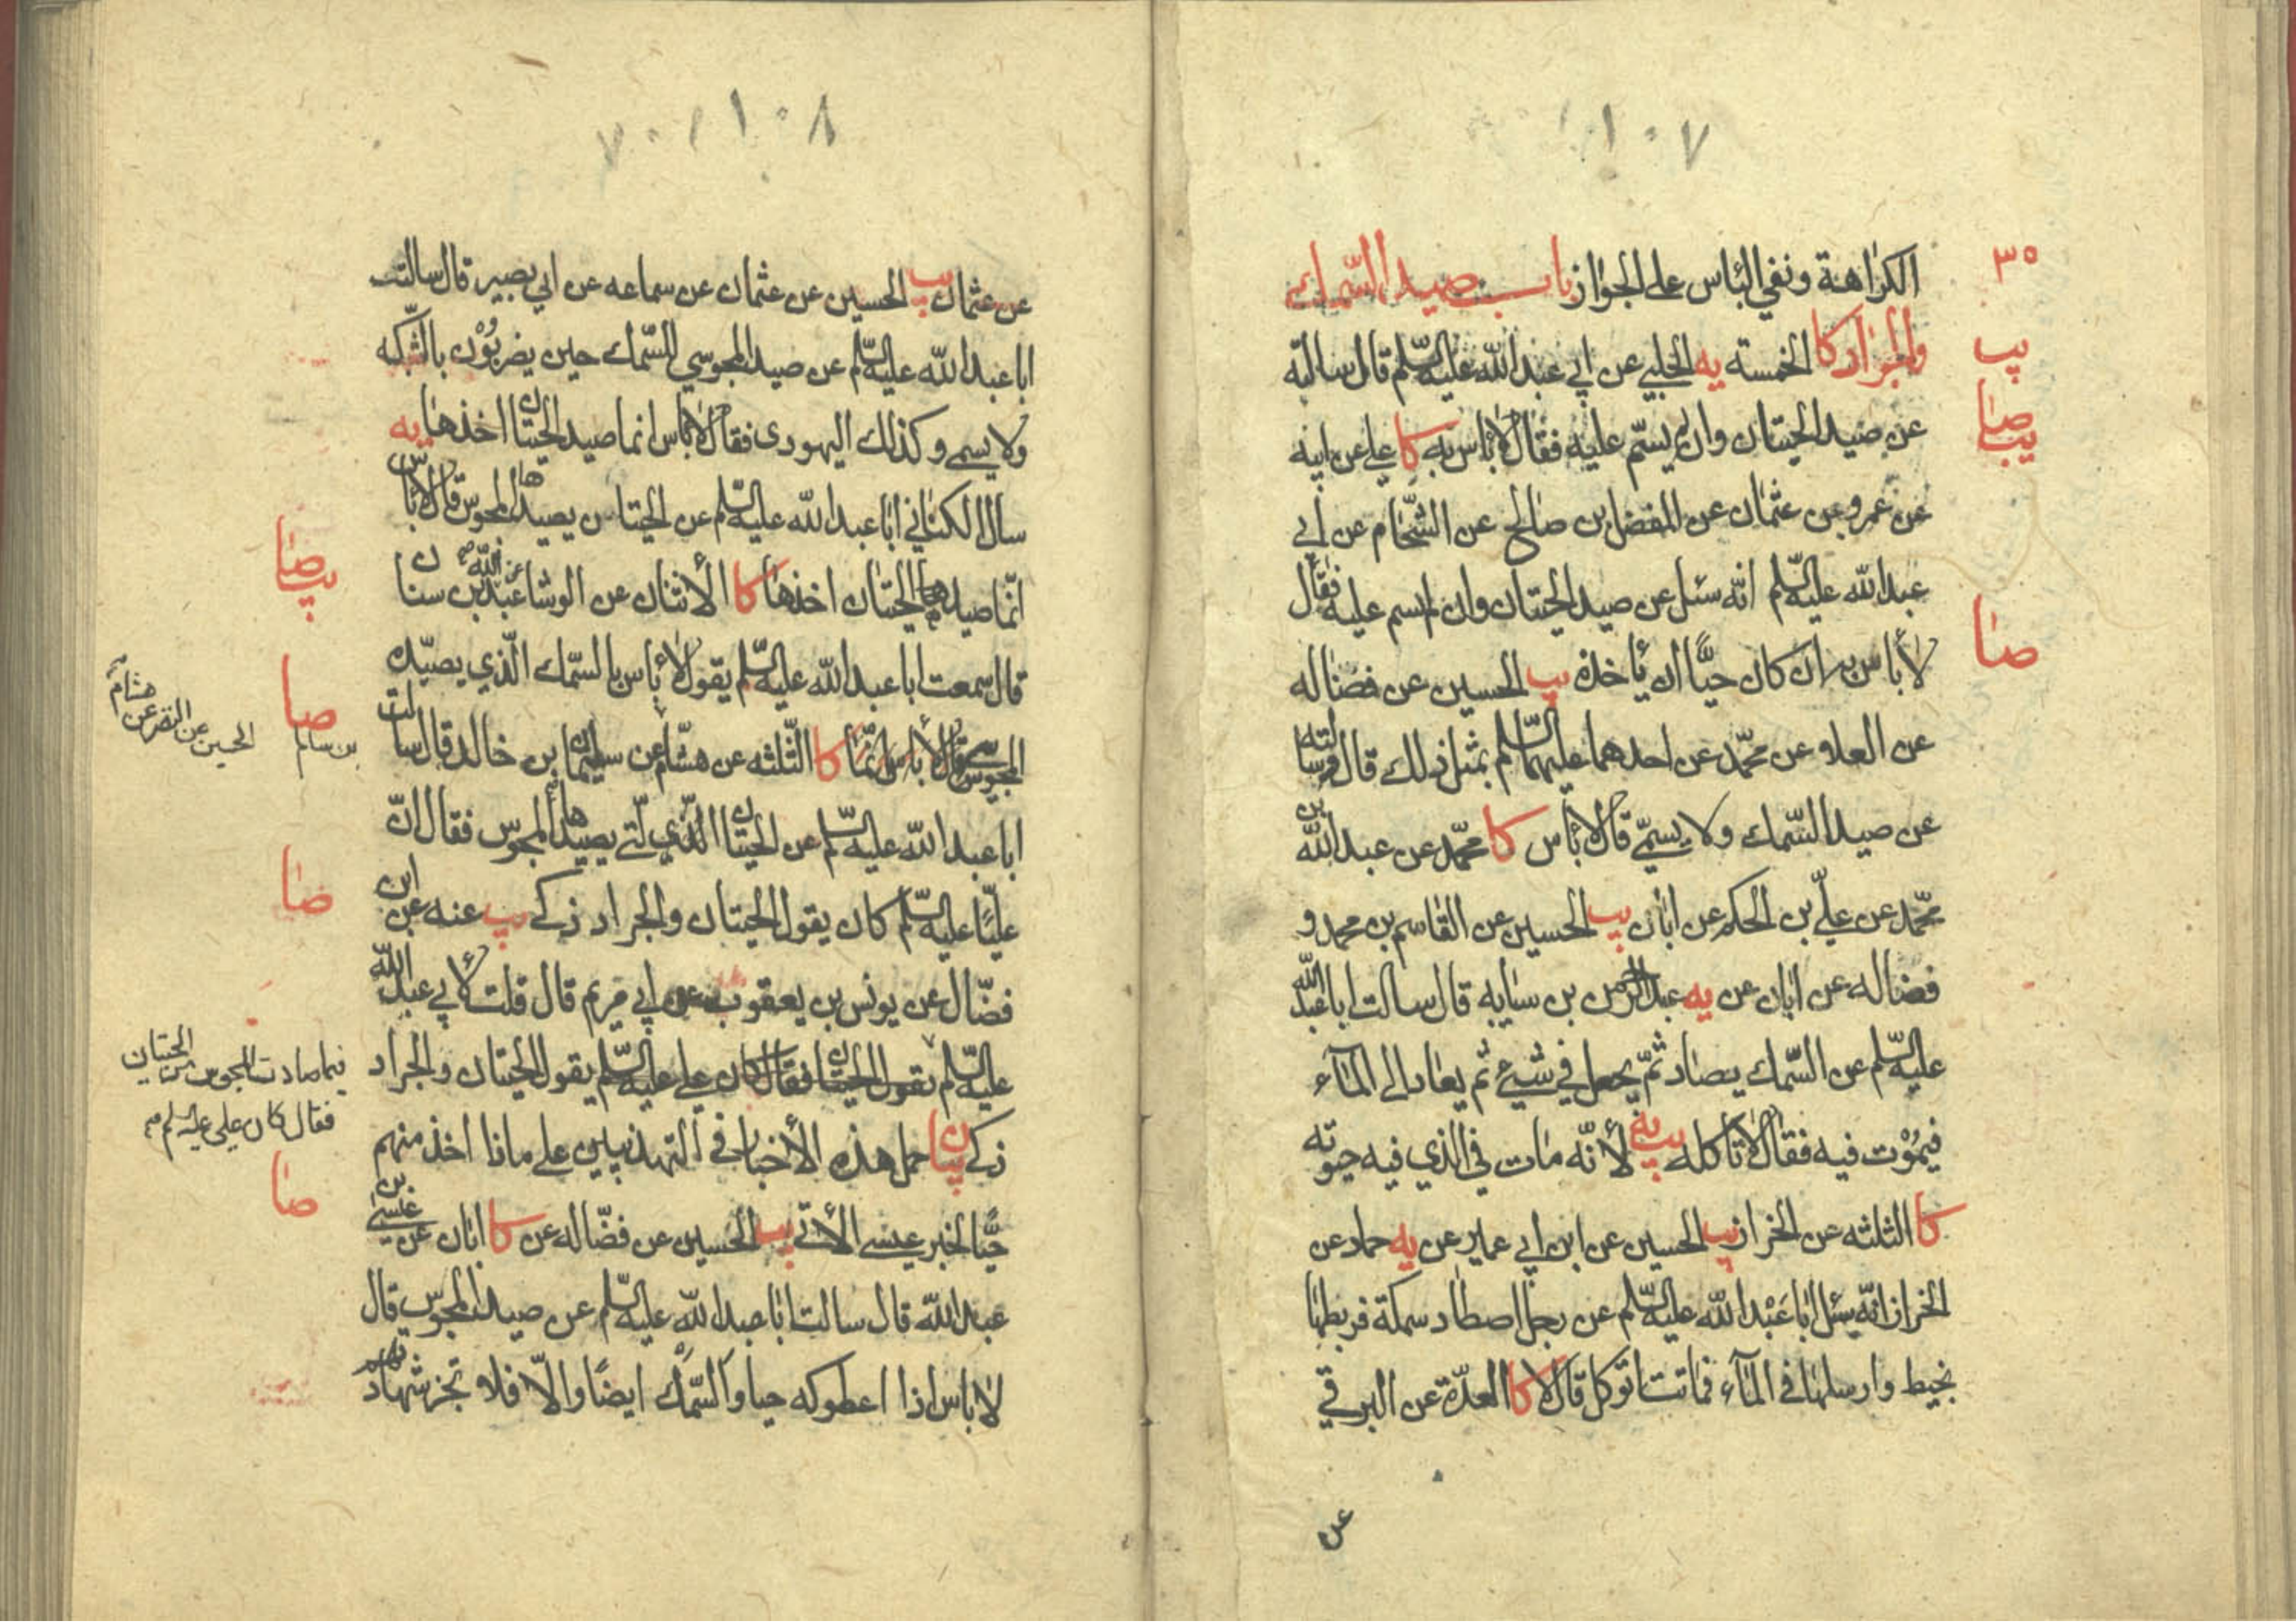 ١٠٧
٣٥
الكراهة ونفي الباس على الجواز باب صيد السمك
والجراد كا الخمسة يه الحلبي عن ابي عبد الله عليه السلم قال سالته
يب
عن صيد الحيتان وان لم يسم عليه فقال لا باس به كا علي عن ابيه
صا
يب
عن عمرو عن عثمان عن المفضل بن صالح عن الشحام عن ابي
عبد الله عليه السلم انه سئل عن صيد الحيتان وان لم يسم عليه فقال
لا باس به ان كان حيا ان ياخذه يب الحسين عن فضاله
صا
عن العلا عن محمد عن احدهما عليهما السلم بمثل ذلك قال وسالته
عن صيد السمك ولا يسمي قال لا باس كا محمد عن عبد الله بن
محمد عن علي بن الحكم عن ابان يب الحسين عن القاسم بن محمد و
فضاله عن ابان عن يه عبد الرحمن بن سيابه قال سالت ابا عبد الله
عليه السلم عن السمك يصاد ثم يجعل في شيء ثم يعاد الى المآء
فيموت فيه فقال لا تاكله يب يه لانه مات في الذي فيه حيوته
كا الثلثه عن الخراز يب الحسين عن ابن ابي عمير عن يه حماد عن
الخراز انه سئل ابا عبد الله عليه السلم عن رجل اصطاد سمكة فربطها
بخيط وارسلها في المآء فماتت اتوكل قال لا كا العدة عن البرقي
عن
١٠٨
٧٠
عن عثمان يب الحسين عن عثمان عن سماعه عن ابي بصير قال سالت
ابا عبد الله عليه السلم عن صيد المجوسي للسمك حين يضربون بالشبكه
ولا يسمي وكذلك اليهودى فقال لا باس انما صيد الحيتان اخذها يه
سال الكناني ابا عبد الله عليه السلم عن الحيتان يصيدها المجوس قال لا باس
انما صيد الحيتان اخذها كا الاثنان عن الوشا عن عبد الله بن سنان
صا
يب
قال سمعت ابا عبد الله عليه السلم يقول لا باس بالسمك الذي يصيده
المجوسي كا الثلثه عن هشام عن سليمان بن خالد قال سالت
صا
الحسين عن النضر عن هشام
بن سالم
ابا عبد الله عليه السلم عن الحيتان التي يصيدها المجوس فقال ان
عليا عليه السلم كان يقول الحيتان والجراد ذكي يب عنه عن ابن
صا
فضال عن يونس بن يعقوب عن ابي مريم قال قلت لابي عبد الله
عليه السلم ما تقول الحيتان فقال كان علي عليه السلم يقول الحيتان والجراد
فيما صادت المجوس من الحيتان
فقال كان علي عليه السلم
ذكي بيان حمل هذه الاخبار في التهذيبين على ما اذا اخذ منهم
حيا لخبر عيسى الاتي يب الحسين عن فضاله عن كا ابان عن عيسى بن
صا
عبد الله قال سالت ابا عبد الله عليه السلم عن صيد المجوس قال
لا باس اذا اعطوكه حيا والسمك ايضا والا فلا تجز شهادتهم